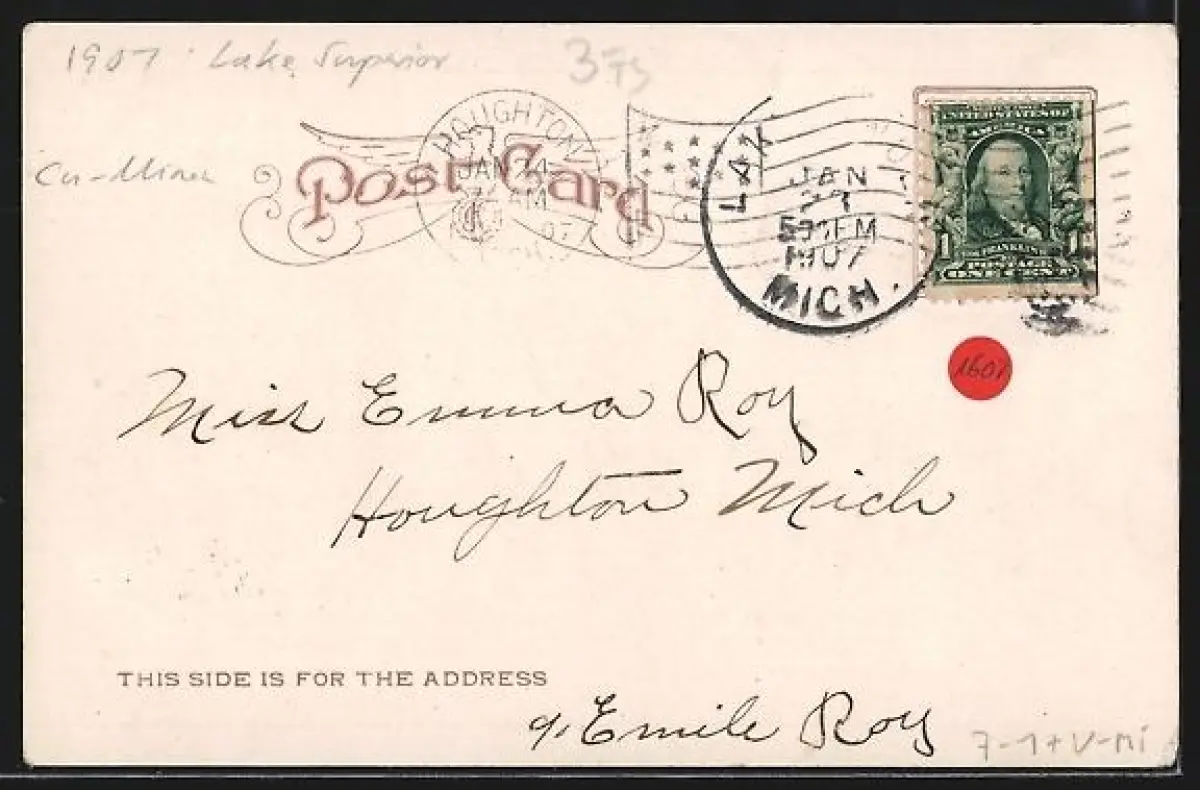 1907 Lake Superior
375
Cu-Mines
Post Card
HOUGHTON
JAN 24
7 AM
07
MICH.
LAK
JAN
23
5 PM
1907
MICH.
UNITED STATES OF
AMERICA
1 FRANKLIN 1
POSTAGE
ONE CENT
1607
Miss Emma Roy
Houghton Mich
THIS SIDE IS FOR THE ADDRESS
Emile Roy
7-1+V-Mi